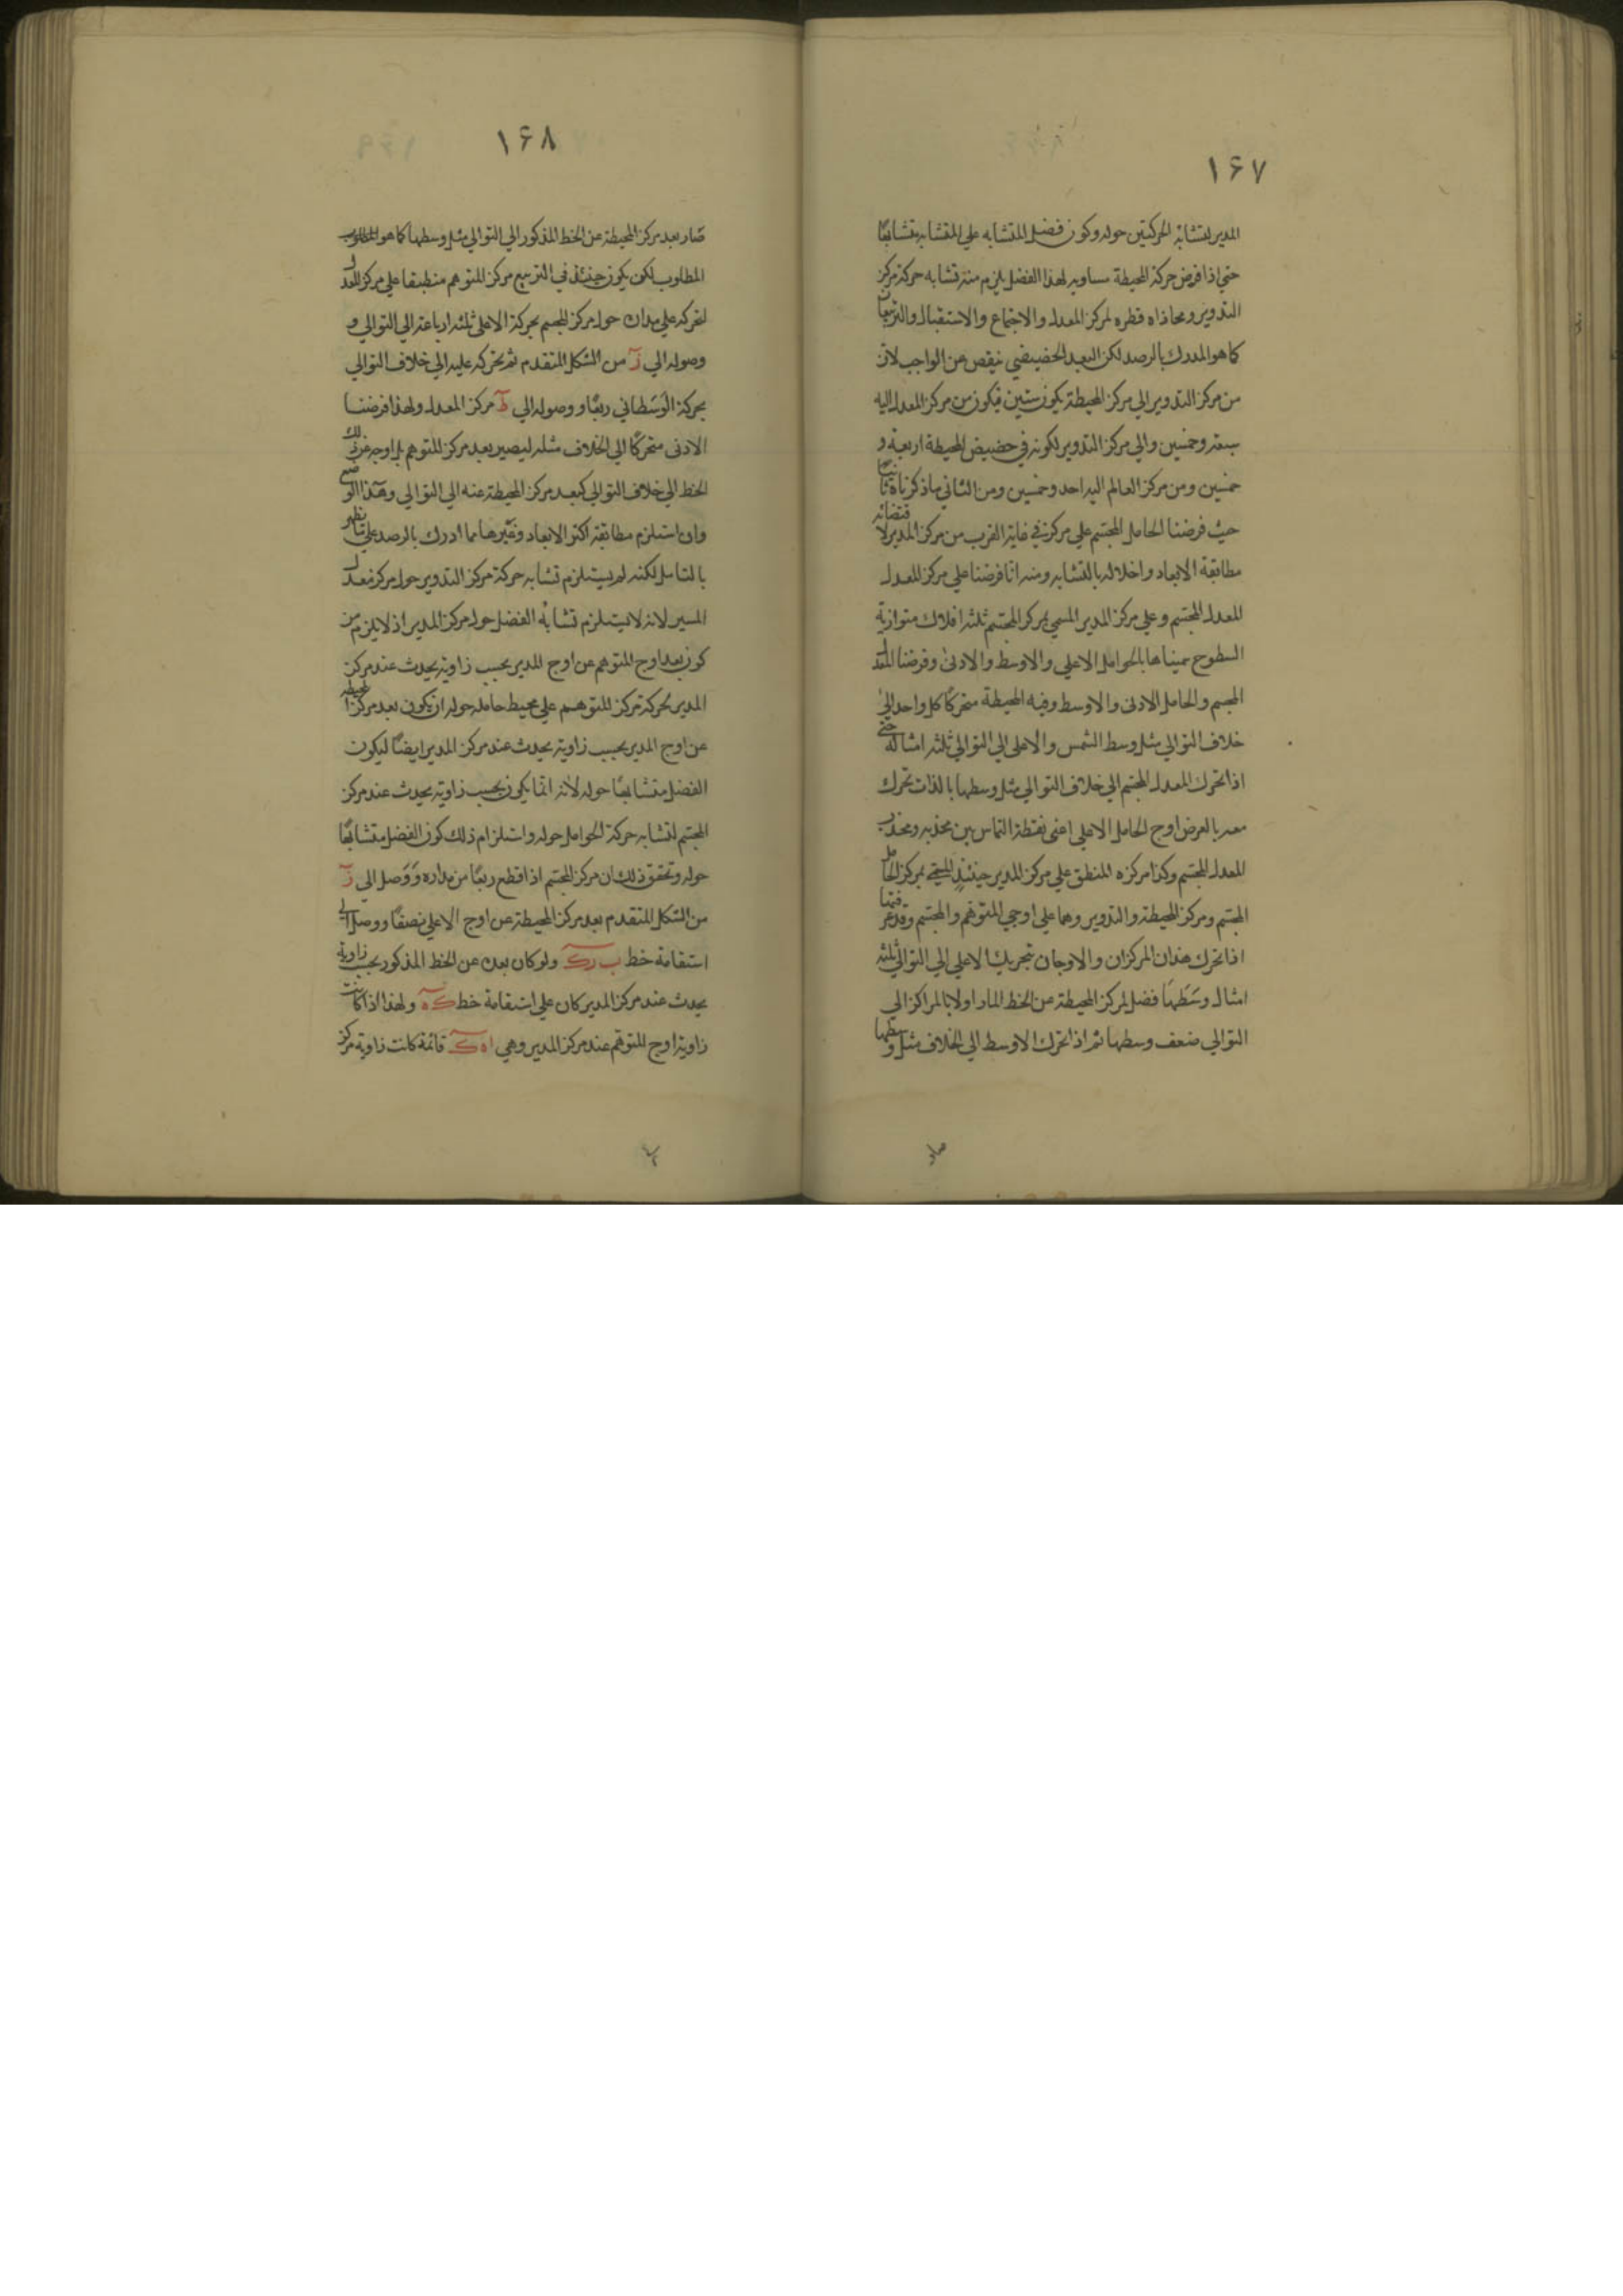 ١٦٧
المدير لتشابه الحركتين حوله وكون فضل المتشابه على المتشابه متشابها
حتى اذا فرض حركة المحيطة مساويه لهذا الفضل يلزم منه تشابه حركة مركز
التدوير ومحاذاه قطره لمركز المعدل والاجتماع والاستقبال والتربيعان
كما هو المدرك بالرصد لكن البعد الحضيضي ينقص عن الواجب لان
من مركز التدوير الى مركز المحيطة يكون ستين فيكون من مركز المعدل اليه
سبعة وخمسين والى مركز التدوير لكونه في حضيض المحيطة اربعة و
خمسين ومن مركز العالم اليه احد وخمسين ومن الثاني ماذكرناه
حيث فرضنا الحامل المجسم على مركز في غاية القرب من مركز المدير لاقتضائه
مطابقة الابعاد واخلاله بالتشابه ومنه انا فرضنا على مركز المعدل
المعدل المجسم وعلى مركز المدير المسمى بمركز المجسم ثلثة افلاك متوازية
السطوح سميناها بالحوامل الاعلى والاوسط والادنى وفرضنا المعدل
المجسم والحامل الادنى والاوسط وفيه المحيطة متحركا كل واحد الى
خلاف التوالي مثل وسط الشمس والاعلى الى التوالي ثلثة امثاله حتى
اذا تحرك المعدل المجسم الى خلاف التوالي مثل وسطها بالذات تحرك
معه بالعرض اوج الحامل الاعلى اعنى نقطة التماس بين محدبه ومحدب
المعدل المجسم وكذا مركزه المنطبق على مركز المدير حينئذٍ المسمى بمركز الحامل
المجسم ومركز المحيطة والتدوير وهما على اوجي المتوهم والمجسم وقد عرفتها
اذا تحرك هذان المركزان والاوجان بتحريك الاعلى الى التوالي ثلثة
امثال وسَطهَا فضل لمركز المحيطة عن الخط المار اولا بالمراكز الى
التوالي ضعف وسطها ثم اذا تحرك الاوسط الى الخلاف مثل وسطها
صار
١٦٨
صَار بعد مركز المحيطة عن الخط المذكور الى التوالي مثل وسطها كما هو المطلوب
المطلوب لكن يكون حينئذ في التربيع مركز المتوهم منطبقا على مركز المعدل
لتحركه على مداره حول مركز المجسم بحركة الاعلى ثلثة ارباعه الى التوالي و
وصوله الى ز من الشكل المتقدم ثم تحركه عليه الى خلاف التوالي
بحركة الوَسَطاني ربعًا ووصوله الى ط مركز المعدل ولهذا فرضنا
الادنى متحركًا الى الخلاف مثله ليصير بعد مركز المتوهم بل اوجه عن ذلك
الخط الى خلاف التوالي كبعد مركز المحيطة عنه الى التوالي وهذا الوضع
وان استلزم مطابقة اكثر الابعاد وغَيْرها مما ادرك بالرصد على ما يظهر
بالتامل لكنه لم يستلزم تشابه حركة مركز التدوير حول مركز معدل
المسير لانه لا يستلزم تشابُه الفضل حول مركز المدير اذ لا يلزم من
كون بعد اوج المتوهم عن اوج المدير بحسب زاوية يحدث عند مركز
المدير لحركة مركز المتوهم على محيط حامله حوله ان يكون بعد مركز المحيطة
عن اوج المدير بحسب زاوية يحدث عند مركز المدير ايضًا ليكون
الفضل متشابهًا حوله لانه انما يكون بحسب زاوية يحدث عند مركز
المجسم لتشابه حركة الحوامل حوله واستلزام ذلك كون الفضل متشابهًا
حوله وتحقق ذلك ان مركز المجسم اذا قطع ربعًا من مداره وَوَصل الى ز
من الشكل المتقدم بعد مركز المحيطة عن اوج الاعلى نصفًا ووصل الى
استقامة خط ب ر ك ولو كان بعده عن الخط المذكور بحسب زاوية
يحدث عند مركز المدير كان على استقامة خط ك ه ولهذا اذا كانت
زاوية اوج المتوهم عند مركز المدير وهي ا ه ك قائمة كانت زاوية مركز